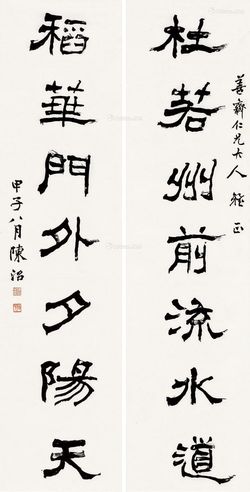 善齋仁兄大人 雅正
杜若州前流水道
稻華門外夕陽天
甲子八月陳治